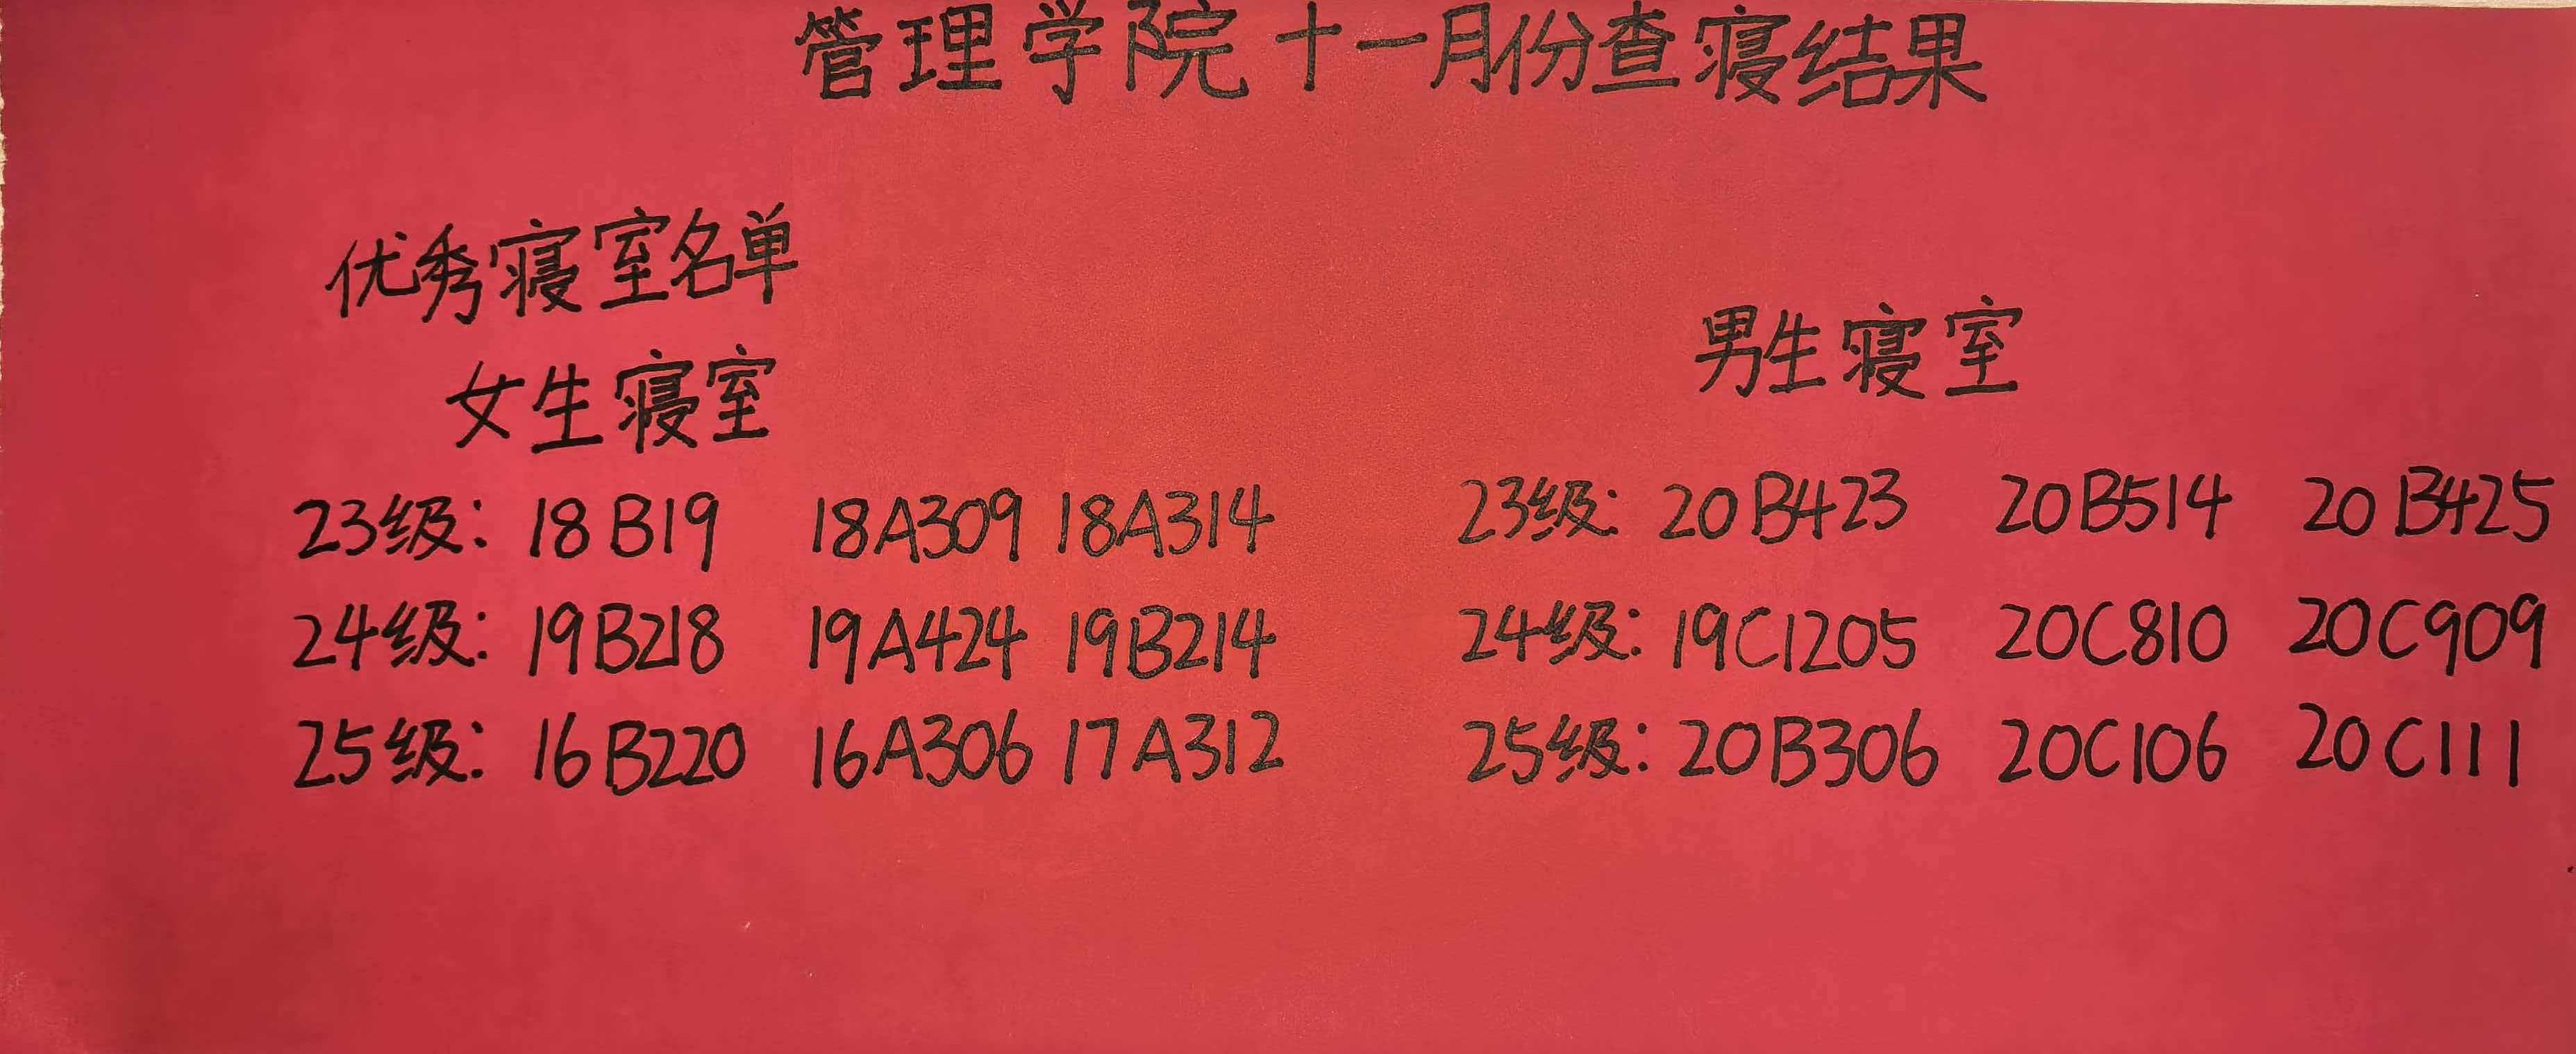 管理学院十一月份查寝结果
优秀寝室名单
女生寝室
23级: 18B19 18A309 18A314
24级: 19B218 19A424 19B214
25级: 16B220 16A306 17A312
男生寝室
23级: 20B423 20B514 20B425
24级: 19C1205 20C810 20C909
25级: 20B306 20C106 20C111